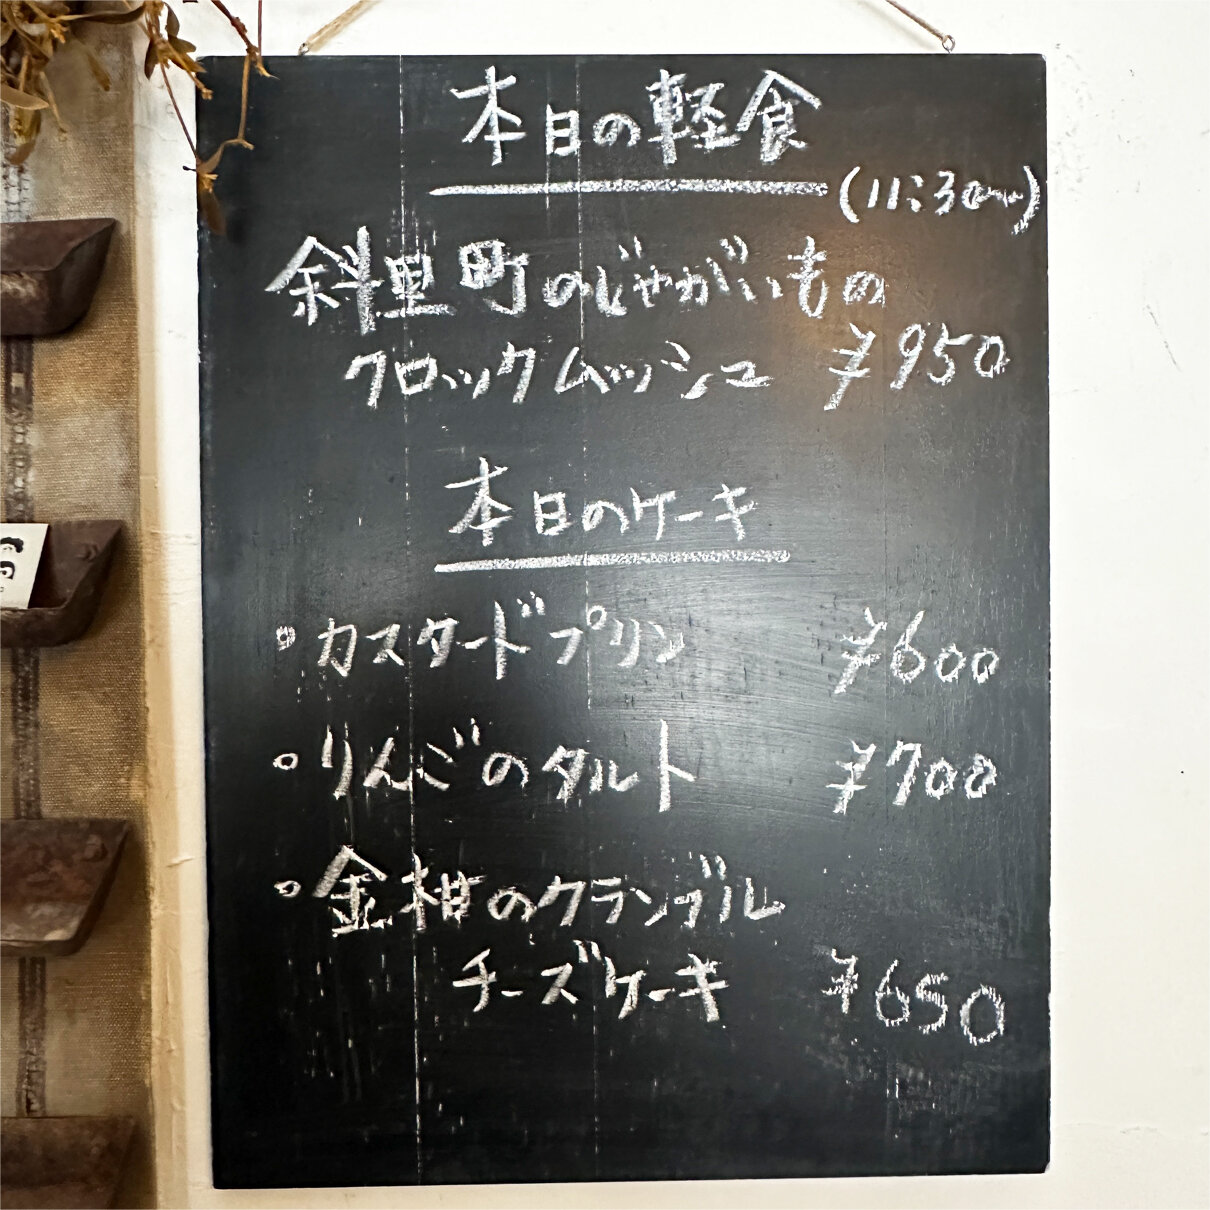 本日の軽食
(11:30〜)
斜里町のじゃがいもの
クロックムッシュ ¥950
本日のケーキ
・カスタードプリン ¥600
・りんごのタルト ¥700
・金柑のクランブル
チーズケーキ ¥650